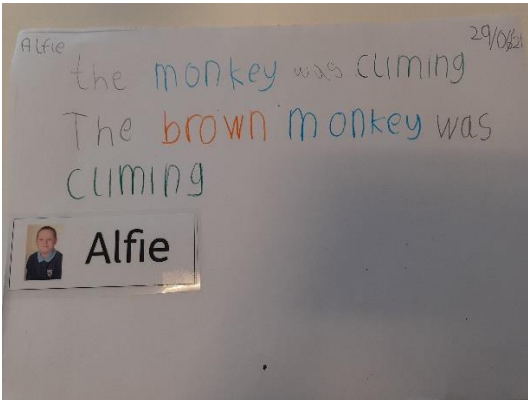 Alfie
29/06/21
the monkey was climing
The brown monkey was
climing
Alfie